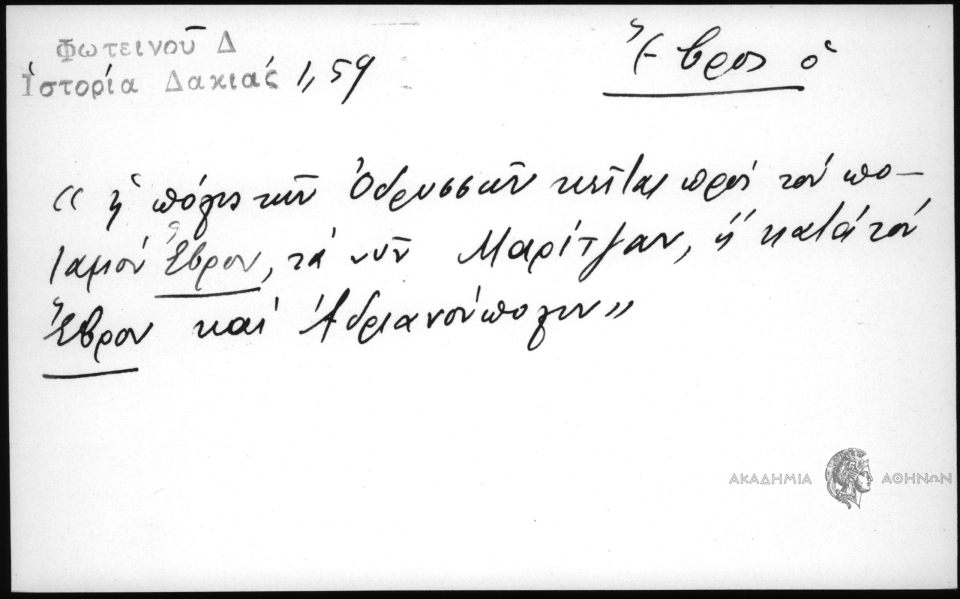 Φωτεινοῦ Δ
Ἱστορία Δακιάς 1,59
Ἕβρος ὁ
«ἡ πόλις τῶν Ὀδρυσσῶν κεῖται πρὸς τὸν πο-
ταμὸν Ἕβρον, τὰ νῦν Μαρίτζαν, ἢ κατὰ τὸν
Ἕβρον καὶ Ἀδριανούπολιν»
ΑΚΑΔΗΜΙΑ ΑΘΗΝΩΝ